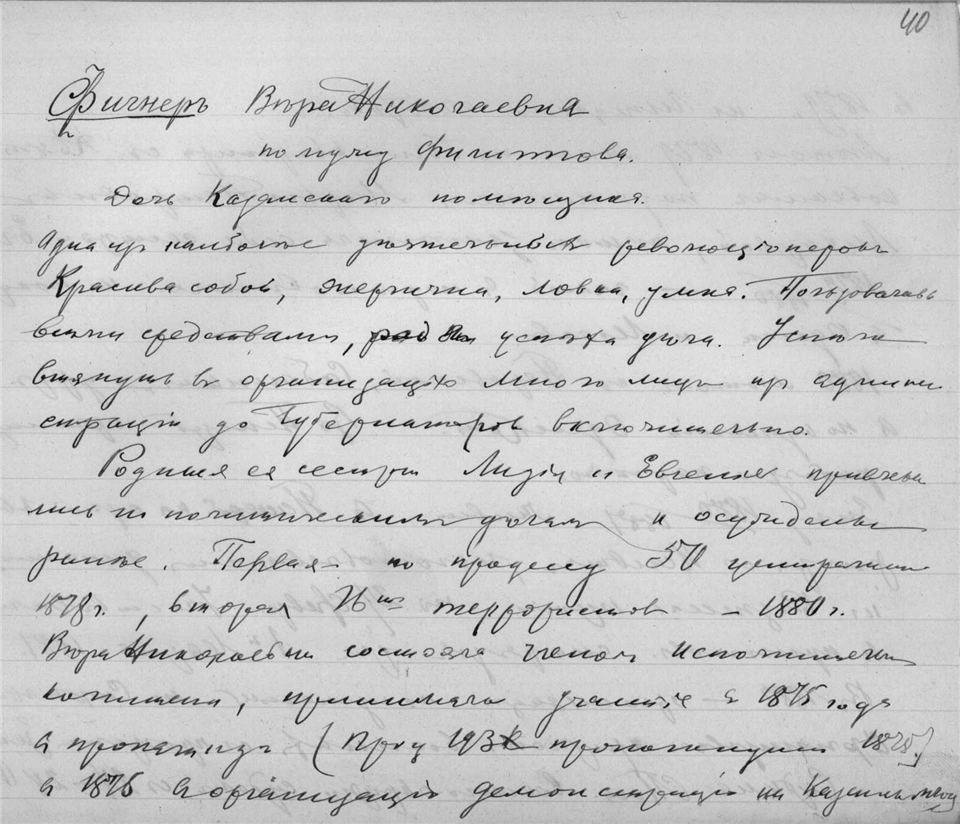 40
Фигнеръ Вѣра Николаевна
по мужу Филиппова.
Дочь Казанскаго помѣщика.
Одна из наиболѣе дѣятельныхъ революціонеровъ
Красива собой, энергична, ловка, умна. Пользовалась
всѣми средствами, для успѣха дѣла. Успѣла
втянуть въ организацію много лицъ из админи
страціи до Губернаторов включительно.
Родныя ея сестры Лидія и Евгенія привлека
лись по политическимъ дѣламъ и осуждены
ранѣе. Первая - по процессу 50 централистов
1878 г., вторая 16ти террористов - 1880 г.
Вѣра Николаевна состояла членом Исполнительн
комитета, принимала участіе с 1875 года
в пропагандѣ (Проц 193х пропаганды 1878)
в 1876 в организаціи демонстраціи на Казанской